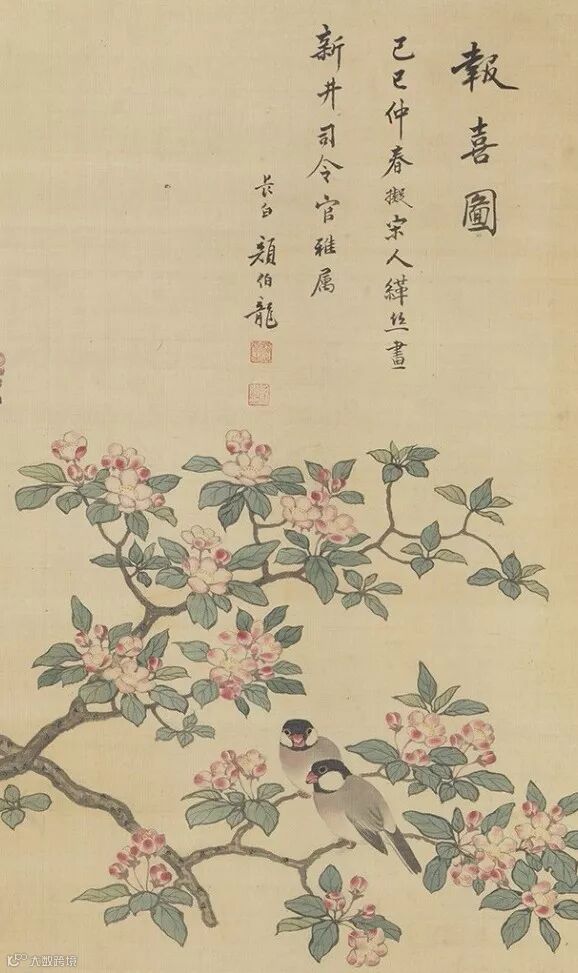 報喜圖
己巳仲春擬宋人緙丝畫
新井司令官雅属
長白 顏伯龍
大数跨境